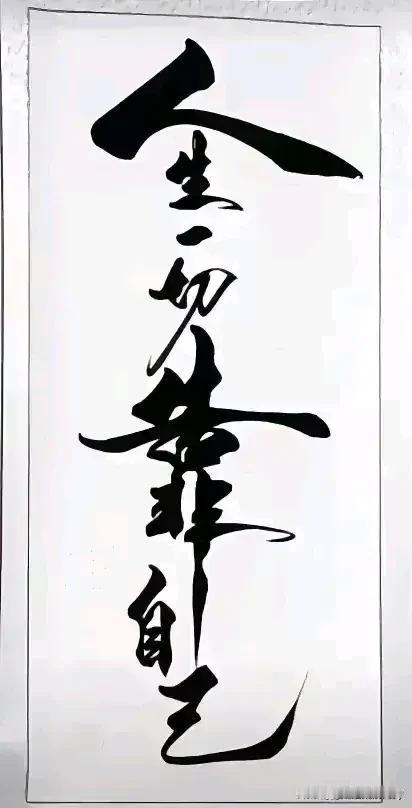 人生一切靠自己